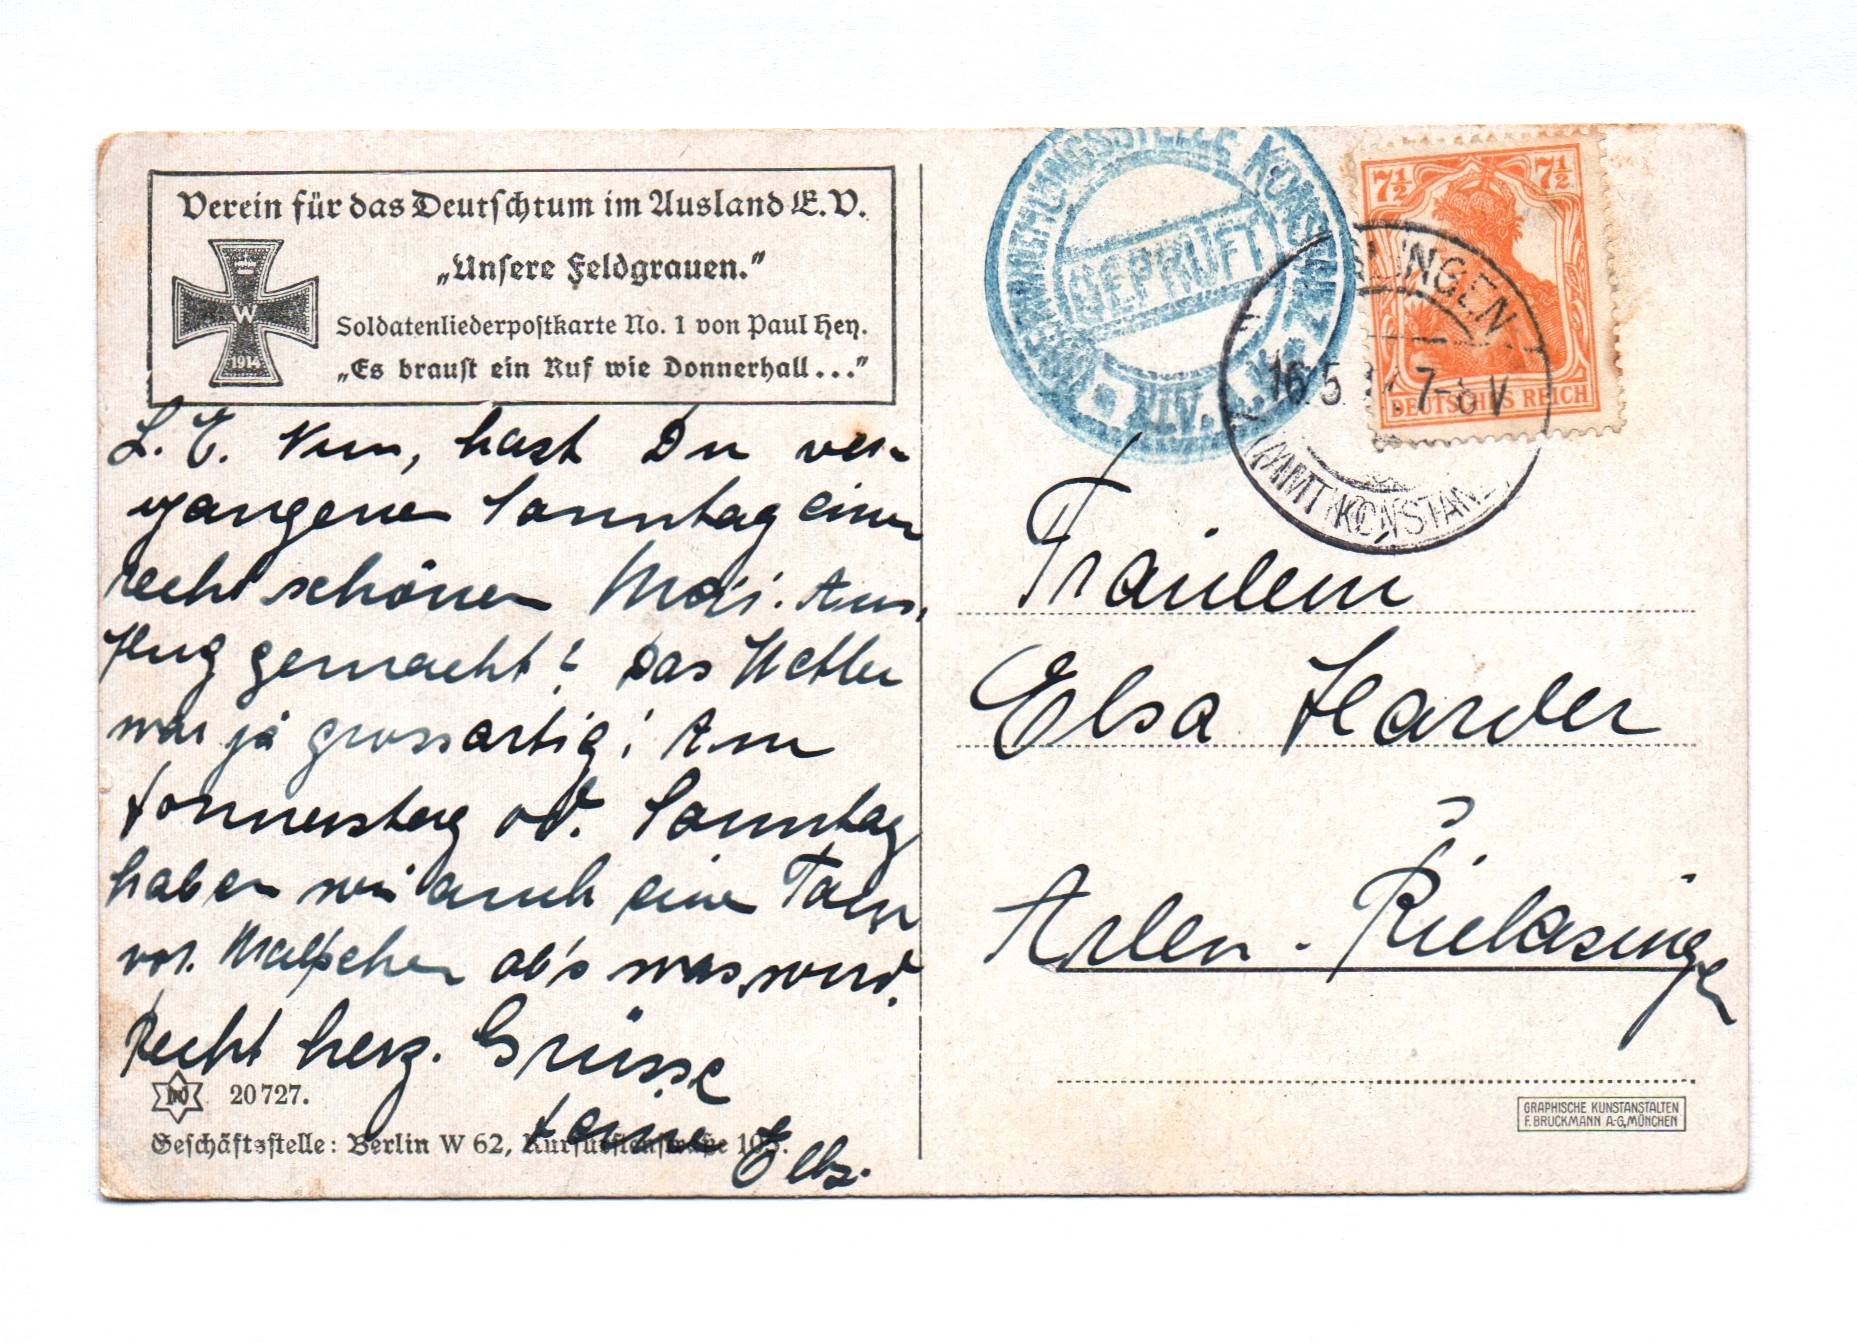 Verein für das Deutschtum im Ausland E.V.
„Unsere Feldgrauen.“
Soldatenliederpostkarte No. 1 von Paul Hey.
„Es braust ein Ruf wie Donnerhall...“
W
1914
L. E. Nun, hast Du ver-
gangenen Sonntag einen
recht schönen Mai-Aus-
flug gemacht? Das Wetter
war ja grossartig! Am
Donnerstag od. Sonntag
haben wir auch eine Tour
vor. ob's was wird.
Recht herz. Grüsse
Deine
20727.
Geschäftsstelle: Berlin W 62, Kurfürstenstraße 105.
KONSTANZ
GEPRÜFT
XIV. A.K.
7½ 7½
DEUTSCHES REICH
INGEN
16.5.17. 7-8V
(AMT KONSTANZ)
Fräulein
Elsa Harder
Arlen - Rielasingen
GRAPHISCHE KUNSTANSTALTEN
F. BRUCKMANN A.-G., MÜNCHEN